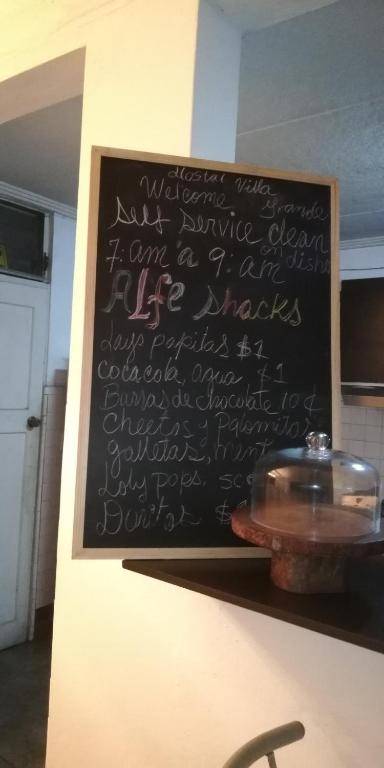 Hostal Villa
Welcome Grande
Self service clean
7:am a 9:am on dishes
Alfe shacks
Lays papitas $1
cocacola, agua $1
Barras de chocolate 10¢
Cheetos y Palomitas
galletas, ment
Loly pops, 50
Doritos $